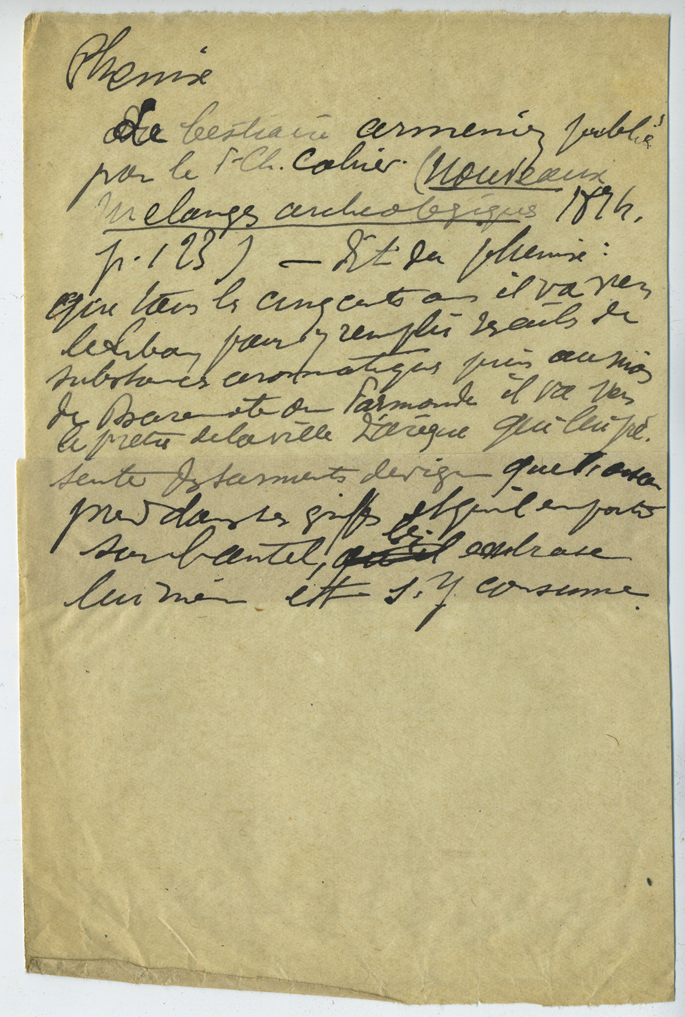 Phenix
Le bestiaire armenien publié
par le P. Ch. Cahier. (Nouveaux
Mélanges archéologiques 1874.
p. 123) — dit du phenix :
que tous les cinq cents ans il va vers
le Liban pour y remplir ses ailes de
substances aromatiques puis au mois
de ou Farmonde il va vers
le pretre de la ville que lui pré-
sente des sarments de vigne que l'oiseau
prend dans ses griffes et qu'il emporte
sur l'autel, les embrase
lui même et s'y consume.